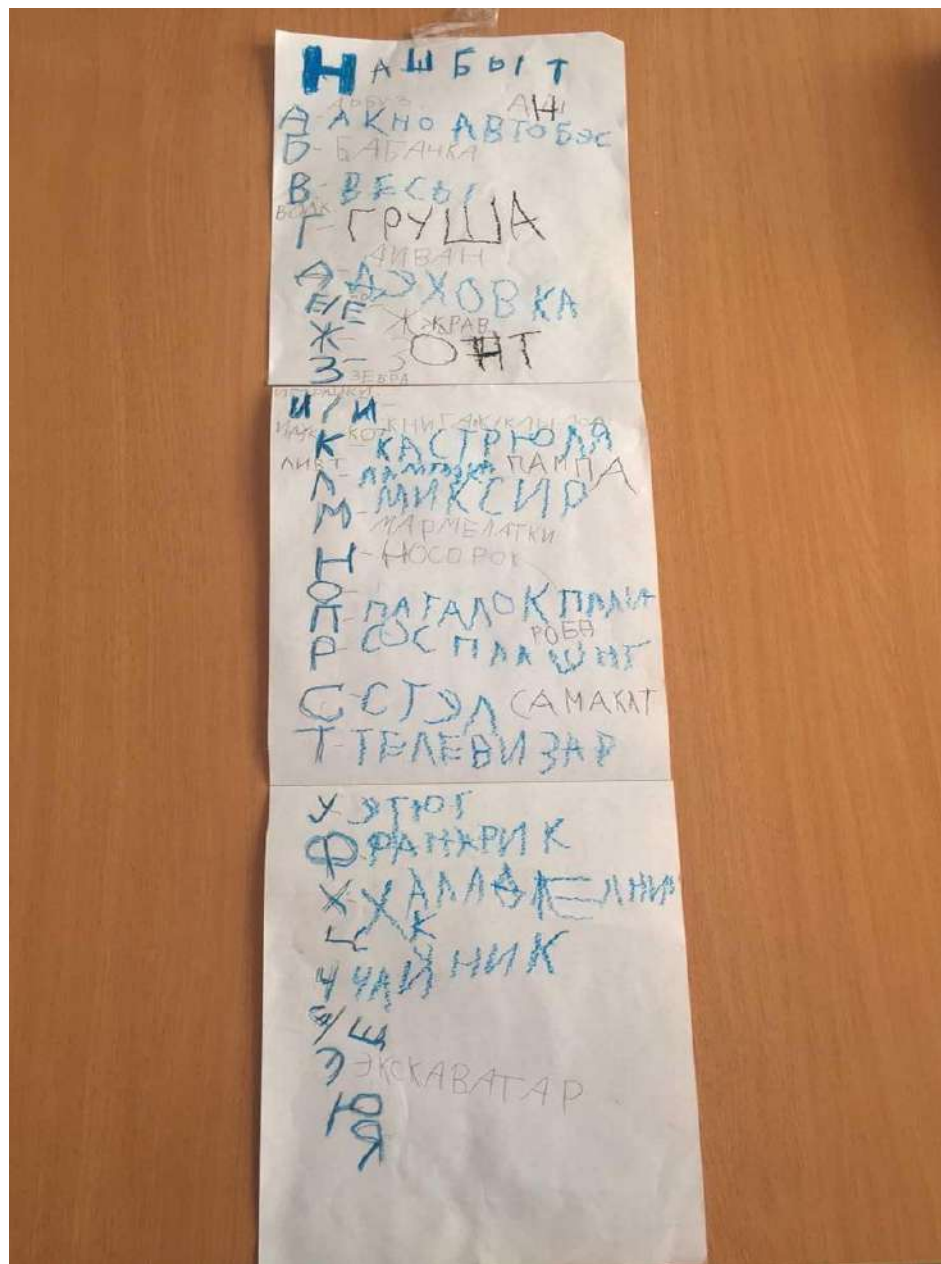 НАШ БЫТ
АРБУЗ
А-АКНО АВТОБЭС
Б-БАБАЧКА
В-ВЕСЫ
ВОЛК
Г-ГРУША
ДИВАН
Д-ДЭХОВКА
Е/Ё-
Ж- ЖЖРАВ
З- ЗОНТ
ЗЕБРА
ИГРАШКИ
И/И-
КОТ КНИГА КУКЛЫ
К-КАСТРЮЛЯ
ЛИФТ
Л-ЛАМПОЧКА ЛАМПА
М-МИКСИР
МАРМЕЛАТКИ
Н-НОСОРОК
О-
П-ПАТАЛОК ПЛЛИ
РОБА
Р-СОС ПЛАШНГ
С-СТЭЛ САМАКАТ
Т-ТЕЛЕВИЗАР
У-ЭТЮГ
Ф РАНАРИК
Х-ХАЛЛАДЕЛНИ
К
Ц
Ч ЧАЙНИК
Ш/Щ
Э ЭКСКАВАТАР
Ю
Я